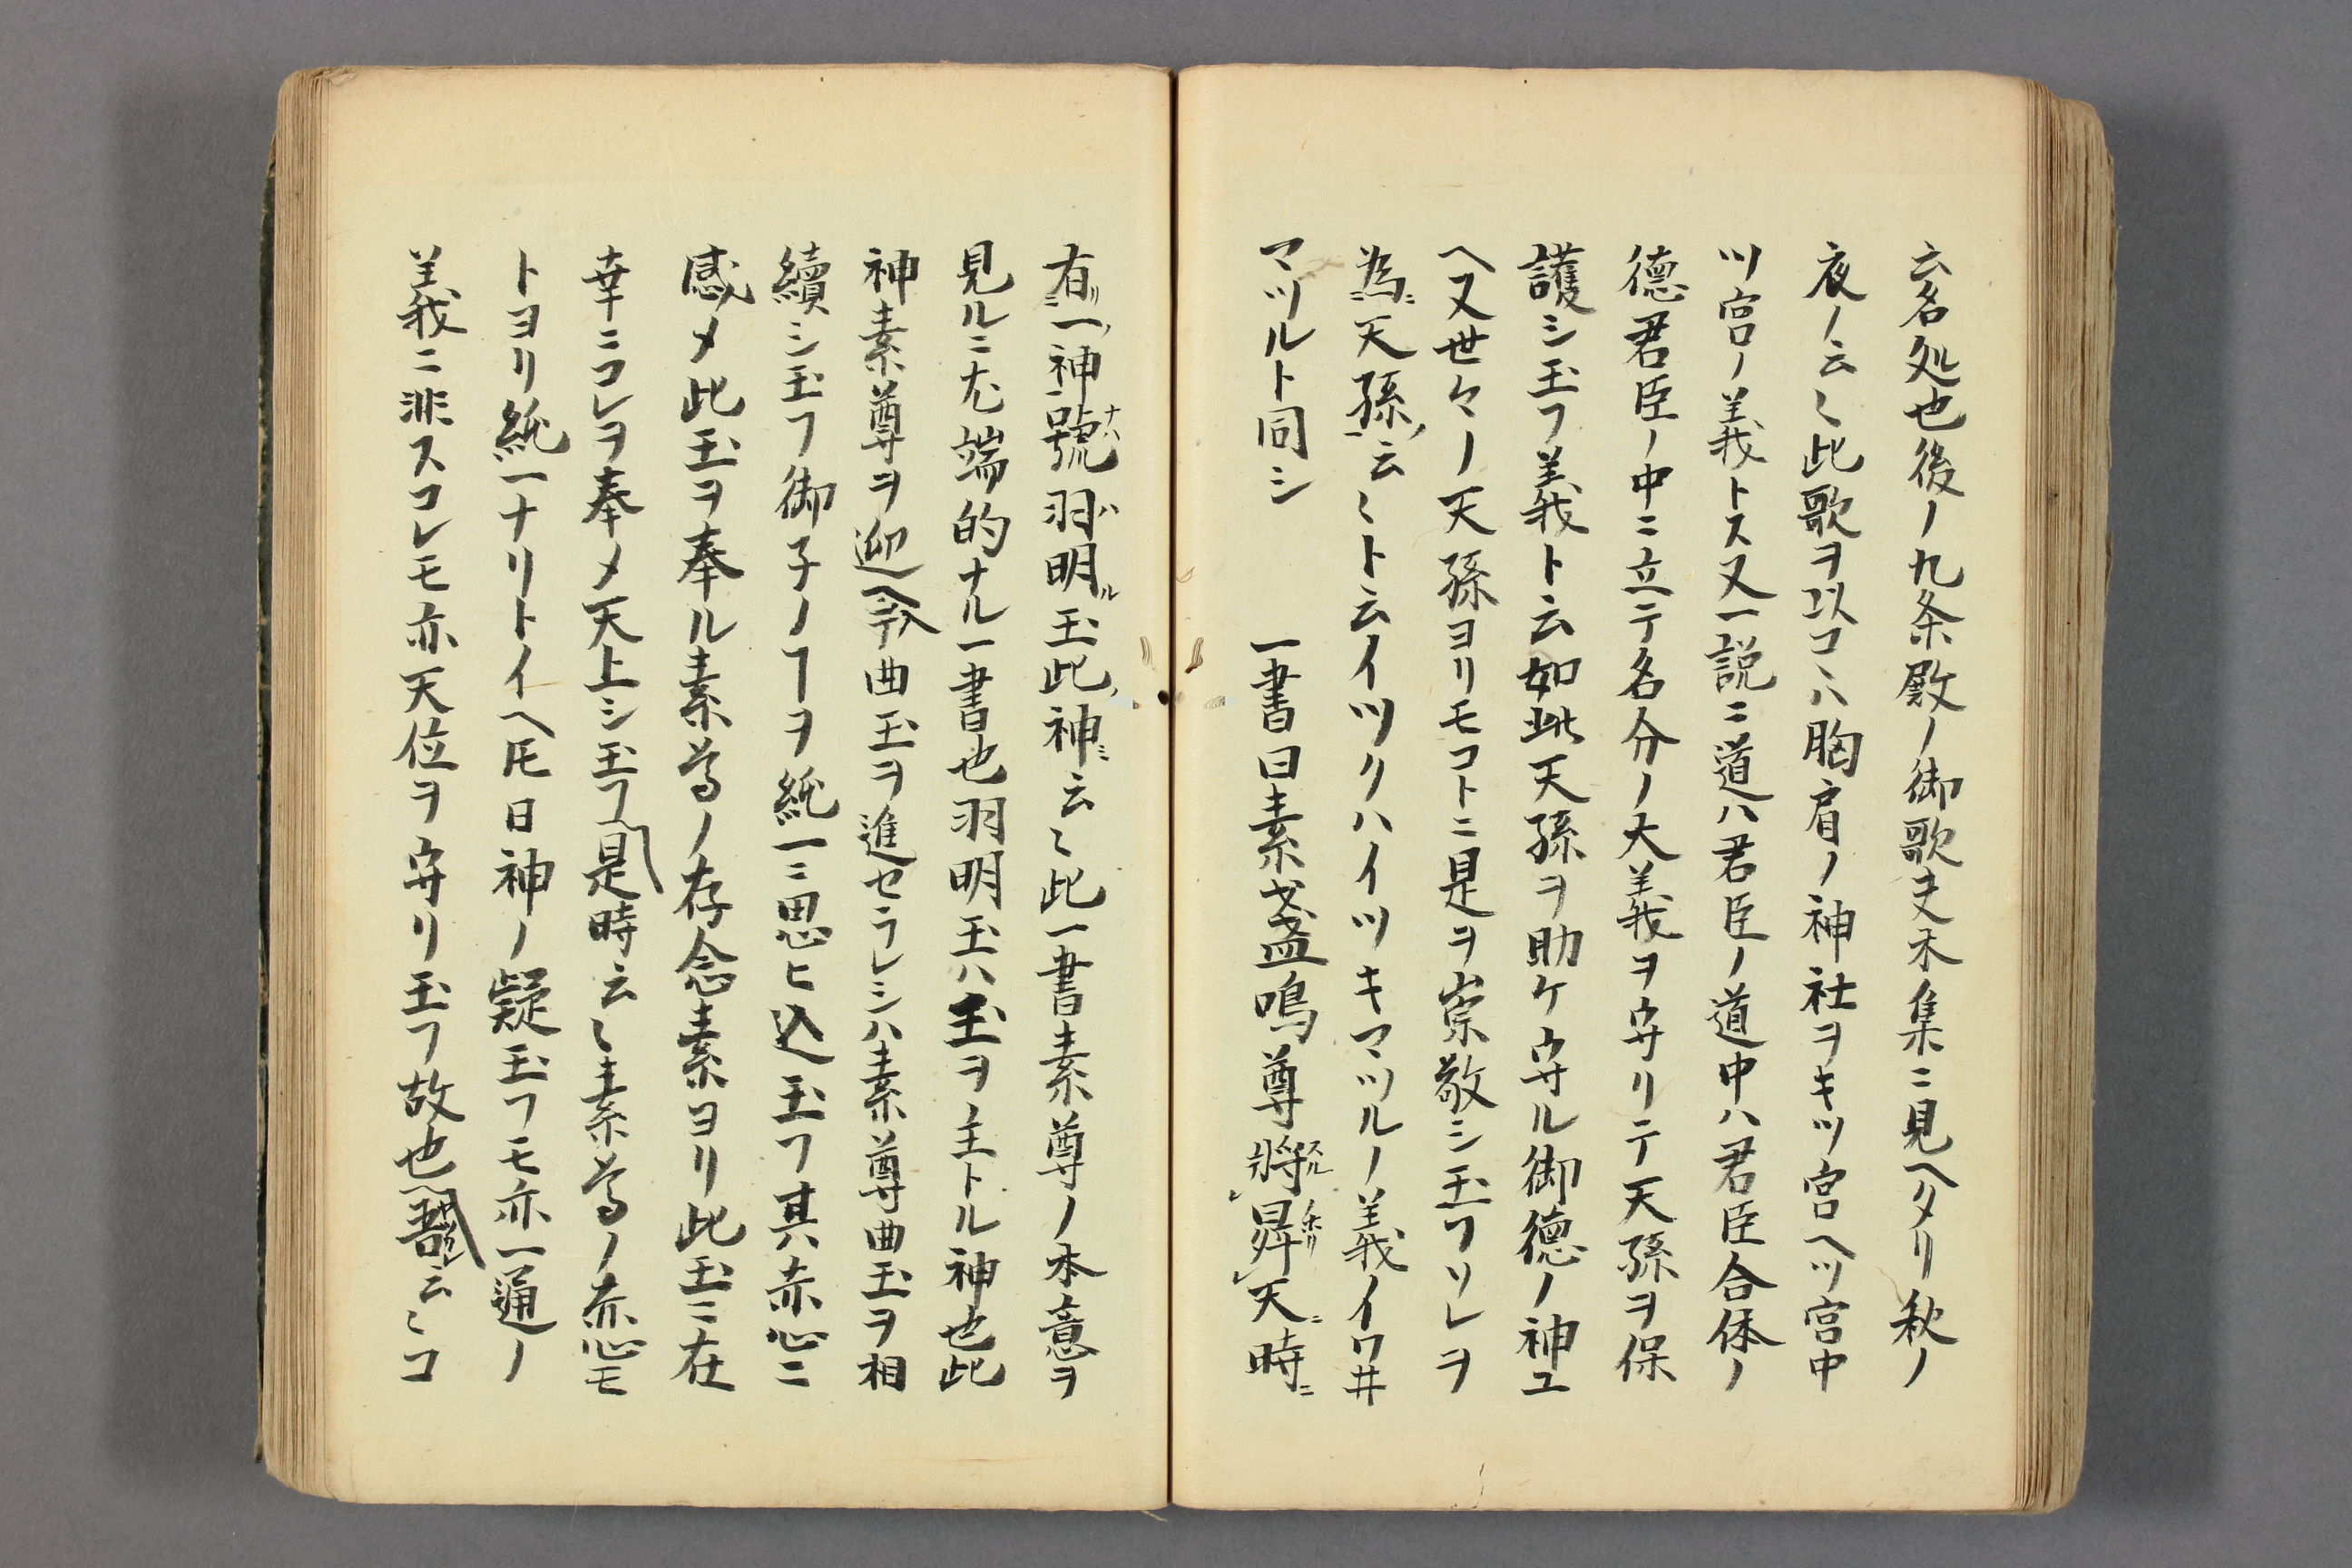 云名処也後ノ九条殿ノ御歌夫木集ニ見ヘタリ秋ノ
夜ノ云〻此歌ヲ以コヽハ胸肩ノ神社ヲキツ宮ヘツ宮中
ツ宮ノ義トス又一説ニ道ハ君臣ノ道中ハ君臣合体ノ
徳君臣ノ中ニ立テ名分ノ大義ヲ守リテ天孫ヲ保
護シ玉フ義ト云如此天孫ヲ助ケ守ル御徳ノ神ユ
ヘ又世々ノ天孫ヨリモコトニ是ヲ崇敬シ玉フソレヲ
為天孫云〻ト云イツクハイツキマツルノ義イワ井
マツルト同シ　一書曰素戔嗚尊將昇天時
有一神號羽明玉此神云〻此一書素尊ノ本意ヲ
見ルニ尤端的ナル一書也羽明玉ハ玉ヲ主トル神也此
神素尊ヲ迎ヘ今曲玉ヲ進セラレシハ素尊曲玉ヲ相
續シ玉フ御子ノヿヲ純一ニ思ヒ込玉フ其赤心ニ
感メ此玉ヲ奉ル素尊ノ存念素ヨリ此玉ニ在
幸ニコレヲ奉メ天上シ玉フ是時云〻素尊ノ赤心モ
トヨリ純一ナリトイヘ𪜈日神ノ疑玉フモ亦一通ノ
義ニ非スコレモ亦天位ヲ守リ玉フ故也云〻コ